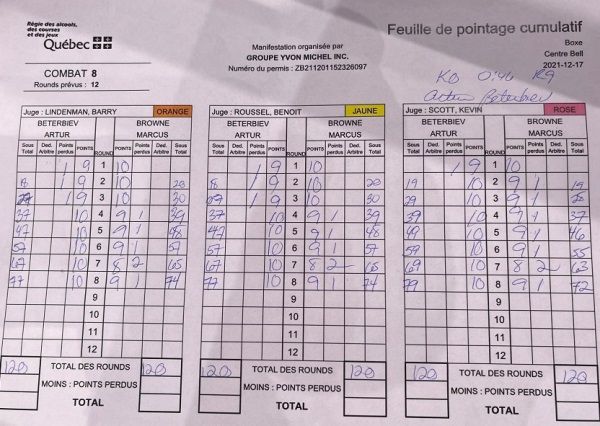 Régie des alcools,
des courses
et des jeux
Québec
Feuille de pointage cumulatif
Manifestation organisée par
GROUPE YVON MICHEL INC.
Numéro du permis : ZB211201152326097
Boxe
Centre Bell
2021-12-17
COMBAT 8
Rounds prévus : 12
KO 0:46 R9
Artur Beterbiev
Juge : LINDENMAN, BARRY ORANGE
BETERBIEV BROWNE
ARTUR MARCUS
Sous Total Ded. Arbitre Points perdus POINTS ROUND POINTS Points perdus Ded. Arbitre Sous Total
1 9 1 10
8 1 9 2 10 20
27 1 9 3 10 30
37 10 4 9 1 39
47 10 5 9 1 48
57 10 6 9 1 57
67 10 7 8 2 65
77 10 8 9 1 74
9
10
11
12
120 TOTAL DES ROUNDS 120
MOINS : POINTS PERDUS
TOTAL
Juge : ROUSSEL, BENOIT JAUNE
BETERBIEV BROWNE
ARTUR MARCUS
Sous Total Ded. Arbitre Points perdus POINTS ROUND POINTS Points perdus Ded. Arbitre Sous Total
1 9 1 10
8 1 9 2 10 20
1 9 3 10 30
37 10 4 9 1 39
47 10 5 9 1 48
57 10 6 9 1 57
67 10 7 8 2 65
77 10 8 9 1 74
9
10
11
12
120 TOTAL DES ROUNDS 120
MOINS : POINTS PERDUS
TOTAL
Juge : SCOTT, KEVIN ROSE
BETERBIEV BROWNE
ARTUR MARCUS
Sous Total Ded. Arbitre Points perdus POINTS ROUND POINTS Points perdus Ded. Arbitre Sous Total
1 9 1 10
19 10 2 9 1 19
29 10 3 9 1 28
39 10 4 9 1 37
49 10 5 9 1 46
59 10 6 9 1 55
69 10 7 8 2 63
79 10 8 9 1 72
9
10
11
12
120 TOTAL DES ROUNDS 120
MOINS : POINTS PERDUS
TOTAL